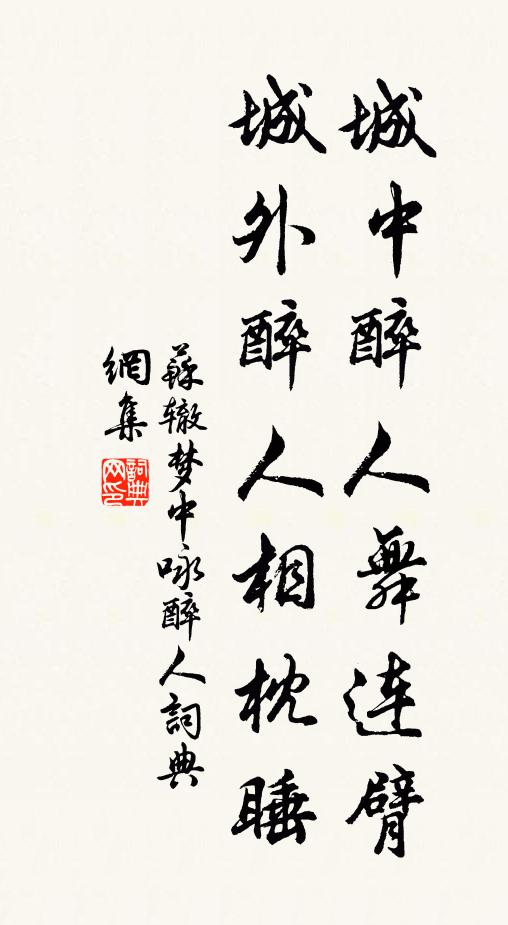 城中醉人舞连臂
城外醉人相枕睡
蘇辙梦中咏醉人詞典
網集
詞典网印